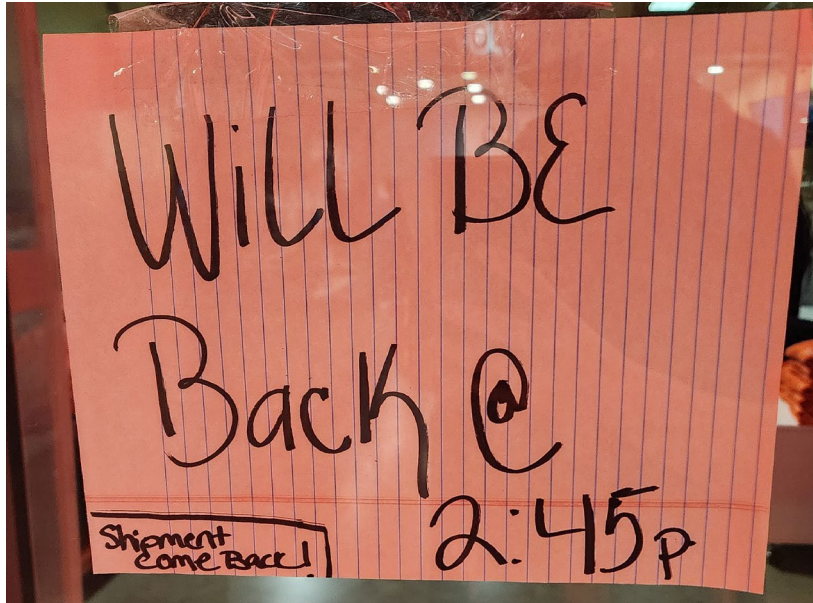 WiLL BE
Back @
2:45p
Shipment
come Back!